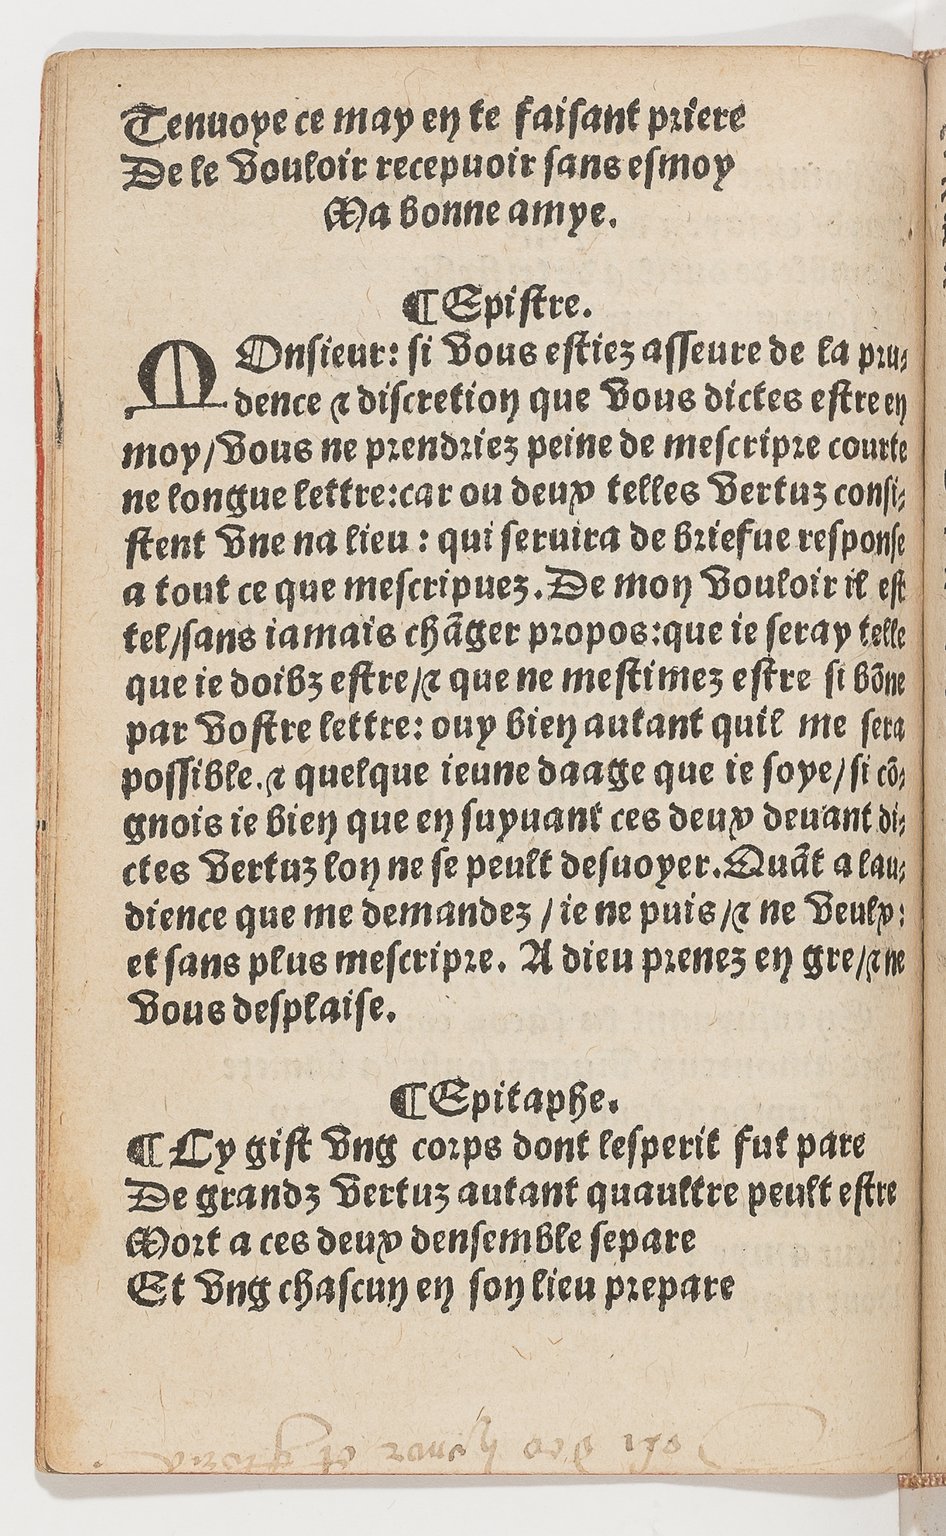 Tenuoye ce may en te faisant priere
De le vouloir recepuoir sans esmoy
Ma bonne amye.
¶ Epistre.
MOnsieur: si vous estiez asseure de la pru-
dence ⁊ discretion que vous dictes estre en
moy/vous ne prendriez peine de mescripre courte
ne longue lettre:car ou deux telles vertuz consi-
stent vne na lieu : qui seruira de briefue response
a tout ce que mescripuez. De mon vouloir il est
tel/sans iamais chãger propos:que ie seray telle
que ie doibz estre/⁊ que ne mestimez estre si bõne
par vostre lettre: ouy bien autant quil me sera
possible.⁊ quelque ieune daage que ie soye/si cõ-
gnois ie bien que en suyuant ces deux deuant di-
ctes vertuz lon ne se peult desuoyer. Quãt a lau-
dience que me demandez / ie ne puis/⁊ ne veulx:
et sans plus mescripre. A dieu prenez en gre/⁊ ne
vous desplaise.
¶ Epitaphe.
¶ Cy gist vng corps dont lesperit fut pare
De grandz vertuz autant quaultre peult estre
Mort a ces deux densemble separe
Et vng chascun en son lieu prepare